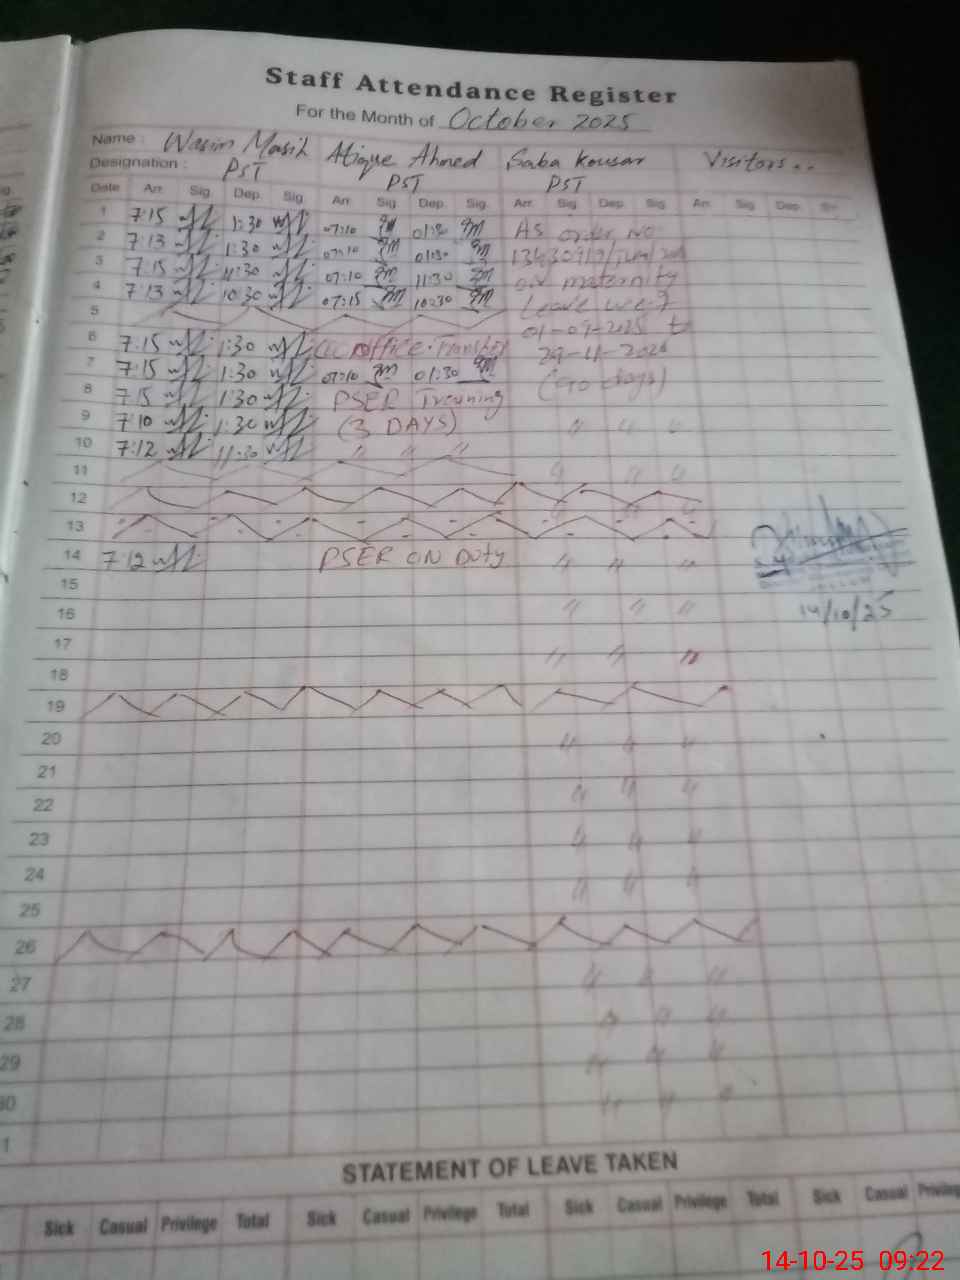 Staff Attendance Register
For the Month of October 2025
Name : Wasim Masih Atique Ahmed Saba Kousar Visitors..
Designation : PST PST PST
Date Arr. Sig. Dep. Sig. Arr. Sig. Dep. Sig. Arr. Sig. Dep. Sig. Arr. Sig. Dep. Sig.
1 7:15 1:30 07:10 01:30 As order No
2 7:13 1:30 07:10 01:30
3 7:15 11:30 07:10 11:30 on maternity
4 7:13 10:30 07:15 10:30 Leave w.e.f
5 01-09-2025 to
6 7:15 1:30 office 29-11-2025
7 7:15 1:30 07:10 01:30 (90 days)
8 7:15 1:30 PSER Training
9 7:10 1:30 (3 DAYS) " " "
10 7:12 11:30 " " "
11 " " "
12 " " "
13 - - - - - - - -
14 7:12 PSER ON Duty " " "
15
16 " " " 14/10/25
17
18 " " "
19
20 " " "
21
22 " " "
23 " " "
24 " " "
25
26
27 " " "
28 " " "
29 " " "
30 " " "
1
STATEMENT OF LEAVE TAKEN
Sick Casual Privilege Total Sick Casual Privilege Total Sick Casual Privilege Total Sick Casual Privileg
14-10-25 09:22